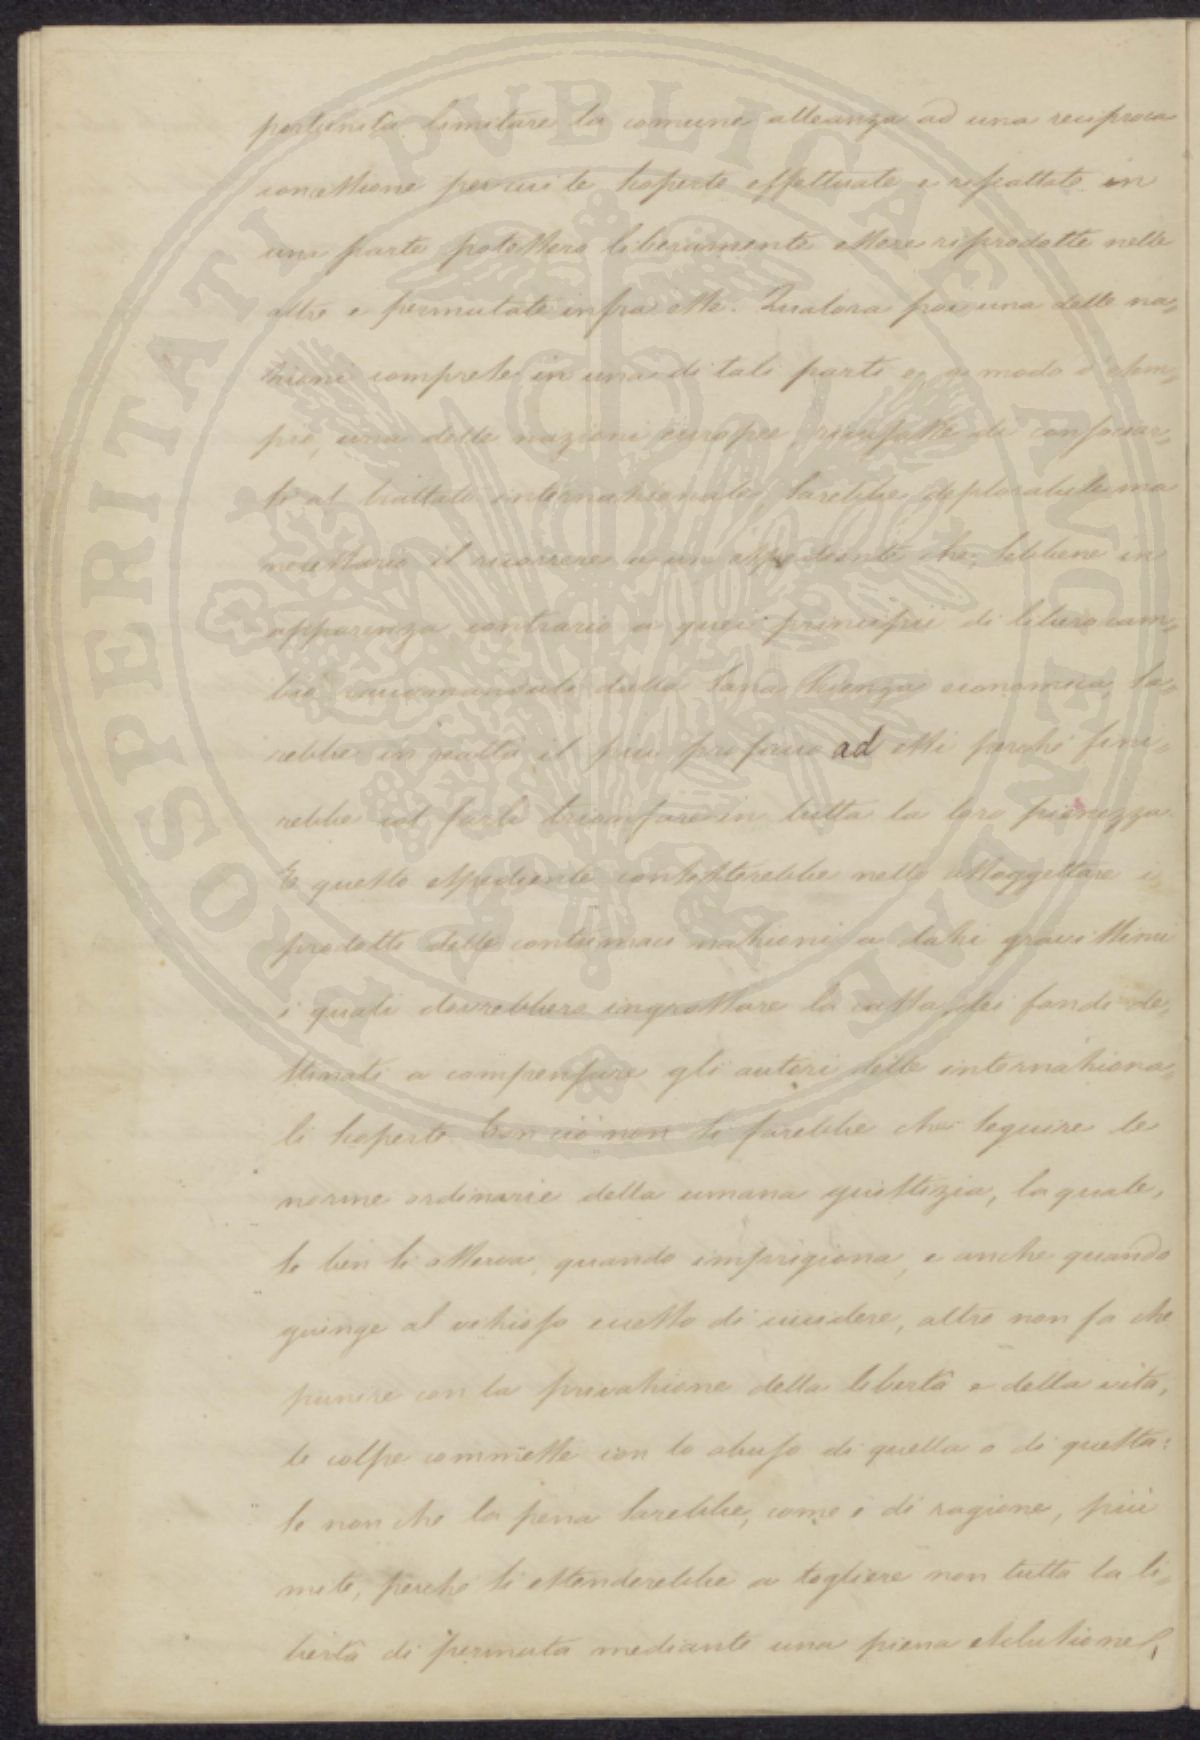 portunità limitare la comune alleanza ad una reciproca
concessione per cui le scoperte effettuate e riscattate in
una parte potessero liberamente essere riprodotte nelle
altre e permutate infra esse. Qualora poi una delle na=
zioni comprese in una di tali parti e, a modo d'esem=
pio, una delle nazioni europee, ricusasse di consociar=
si al trattato internazionale, sarebbe deplorabile ma
necessario il ricorrere a un espediente che, sebbene in
apparenza contrario a quei principii di libero cam=
bio raccomandati dalla sana scienza economica, sa=
rebbe in realtà il più proficuo ad essi perché fini=
rebbe col farli trionfare in tutta la loro pienezza.
E questo espediente consisterebbe nello assoggettare i
prodotti delle contumaci nazioni a dazi gravissimi
i quali dovrebbero ingrossare la cassa dei fondi de=
stinati a compensare gli autori delle internaziona=
li scoperte. Con ciò non si farebbe che seguire le
norme ordinarie della umana giustizia, la quale,
se ben si osserva, quando imprigiona, e anche quando
giunge al vizioso eccesso di uccidere, altro non fa che
punire con la privazione della libertà e della vita,
le colpe commesse con lo abuso di quella o di questa:
se non che la pena sarebbe, come è di ragione, più
mite, perché si estenderebbe a togliere non tutta la li=
bertà di permuta mediante una piena esclusione,
PROSPERITATI PVBLICAE AVGENDAE